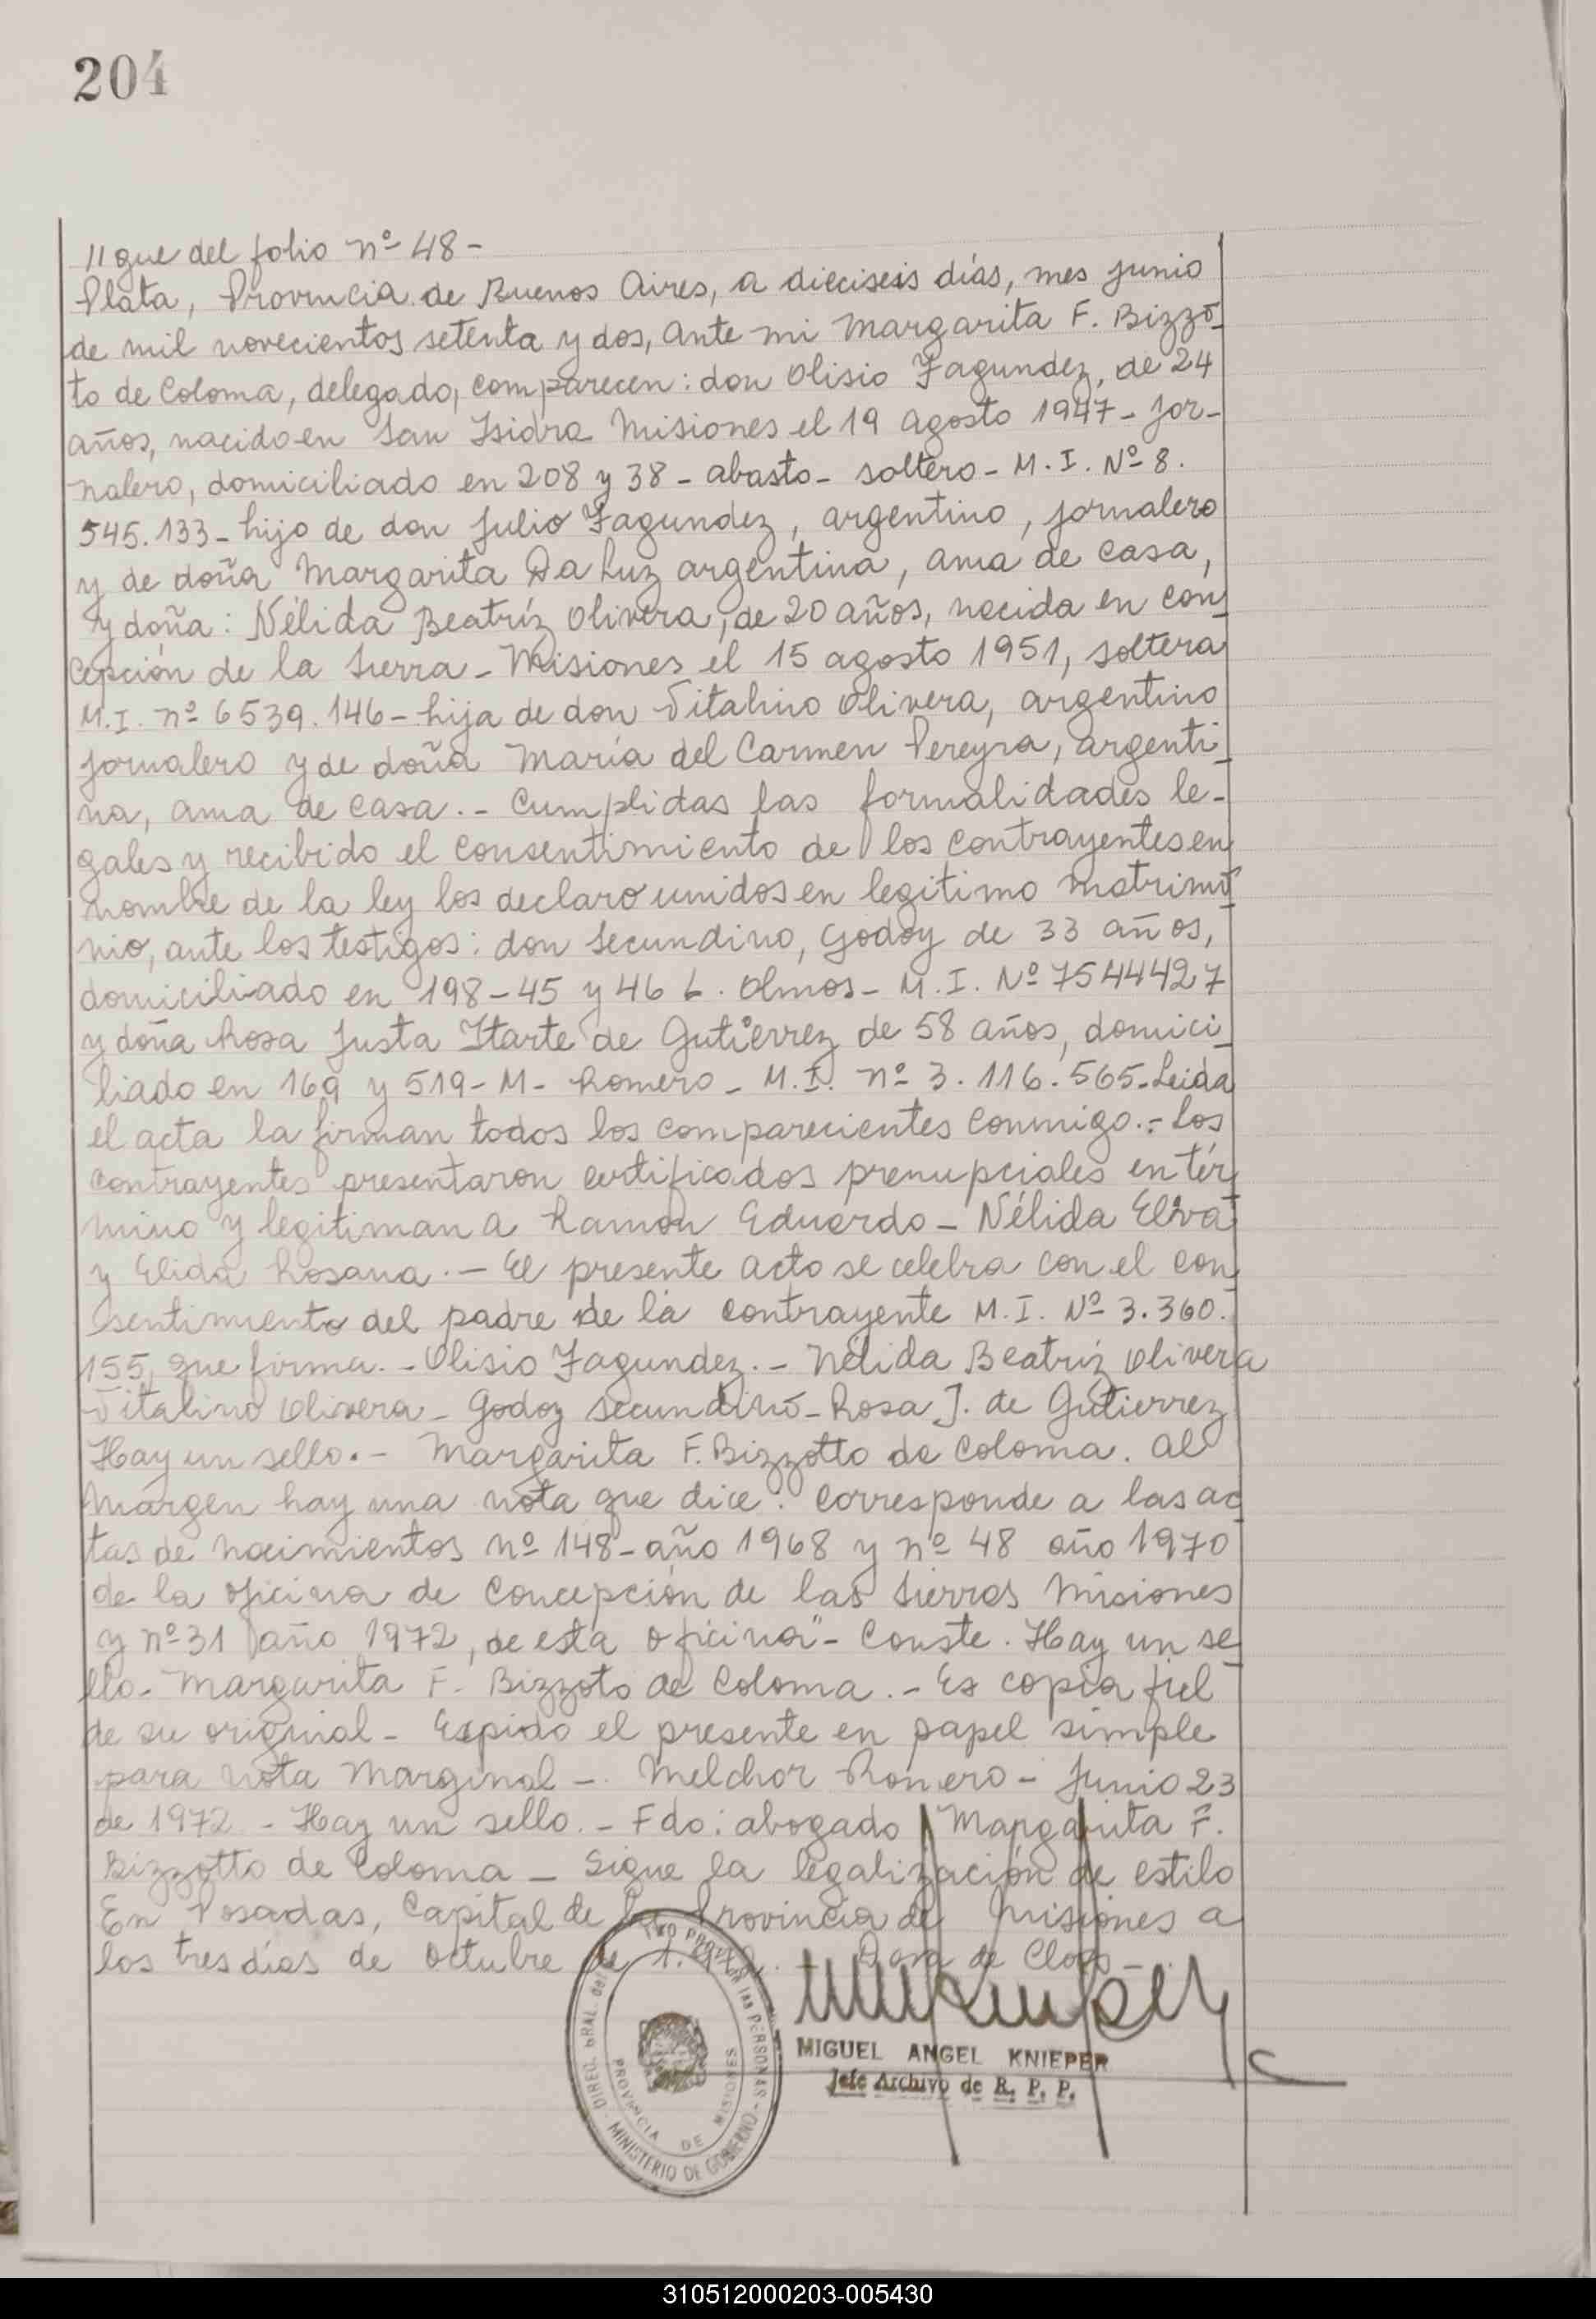 204
//gue del folio nº 48-
Plata, Provincia de Buenos Aires, a dieciseis días, mes junio
de mil novecientos setenta y dos, ante mi Margarita F. Bizzo-
to de Coloma, delegado, comparecen: don Olisio Fagundez, de 24
años, nacido en San Isidro Misiones el 19 agosto 1947- jor-
nalero, domiciliado en 208 y 38 - abasto - soltero - M. I. Nº 8.
545.133- hijo de don Julio Fagundez, argentino, jornalero
y de doña Margarita Da Luz argentina, ama de casa,
y doña: Nélida Beatríz Olivera, de 20 años, nacida en Con-
cepción de la Sierra - Misiones el 15 agosto 1951, soltera
M.I. nº 6539.146- hija de don Vitalino Olivera, argentino
jornalero y de doña María del Carmen Pereyra, argenti-
na, ama de casa.- Cumplidas las formalidades le-
gales y recibido el consentimiento de los contrayentes en
nombre de la ley los declaro unidos en legitimo matrimo-
nio, ante los testigos: don Secundino, Godoy de 33 años,
domiciliado en 198-45 y 46 L. Olmos- M.I. Nº 7544427
y doña Rosa Justa Itarte de Gutiérrez de 58 años, domici-
liado en 169 y 519- M- Romero - M.I. nº 3.116.565- Leida
el acta la firman todos los comparecientes conmigo.- Los
contrayentes presentaron certificados prenupciales en tér-
mino y legitiman a Ramón Eduardo - Nélida Elva
y Elida Rosana.- El presente acto se celebra con el con-
sentimiento del padre de la contrayente M.I. Nº 3.360.
155, que firma.- Olisio Fagundez.- Nélida Beatriz Olivera
Vitalino Olivera - Godoy Secundino - Rosa J. de Gutierrez
Hay un sello.- Margarita F. Bizzotto de Coloma. Al
márgen hay una nota que dice: Corresponde a las ac-
tas de nacimientos nº 148- año 1968 y nº 48 año 1970
de la oficina de Concepción de las Sierras Misiones
y nº 31 año 1972, de esta oficina"- Conste. Hay un se-
llo- Margarita F. Bizzoto de Coloma.- Es copia fiel
de su original - Expido el presente en papel simple
para nota marginal -. Melchor Romero - Junio 23
de 1972 - Hay un sello.- Fdo: abogado Margarita F.
Bizzotto de Coloma - Sigue la legalización de estilo
En Posadas, Capital de la Provincia de Misiones a
los tres días de octubre de 1.972. - Dora de
DIREC. GRAL. del PROV. de las PERSONAS - MINISTERIO DE GOBIERNO
PROVINCIA DE MISIONES
MIGUEL ANGEL KNIEPER
Jefe Archivo de R. P. P.
310512000203-005430